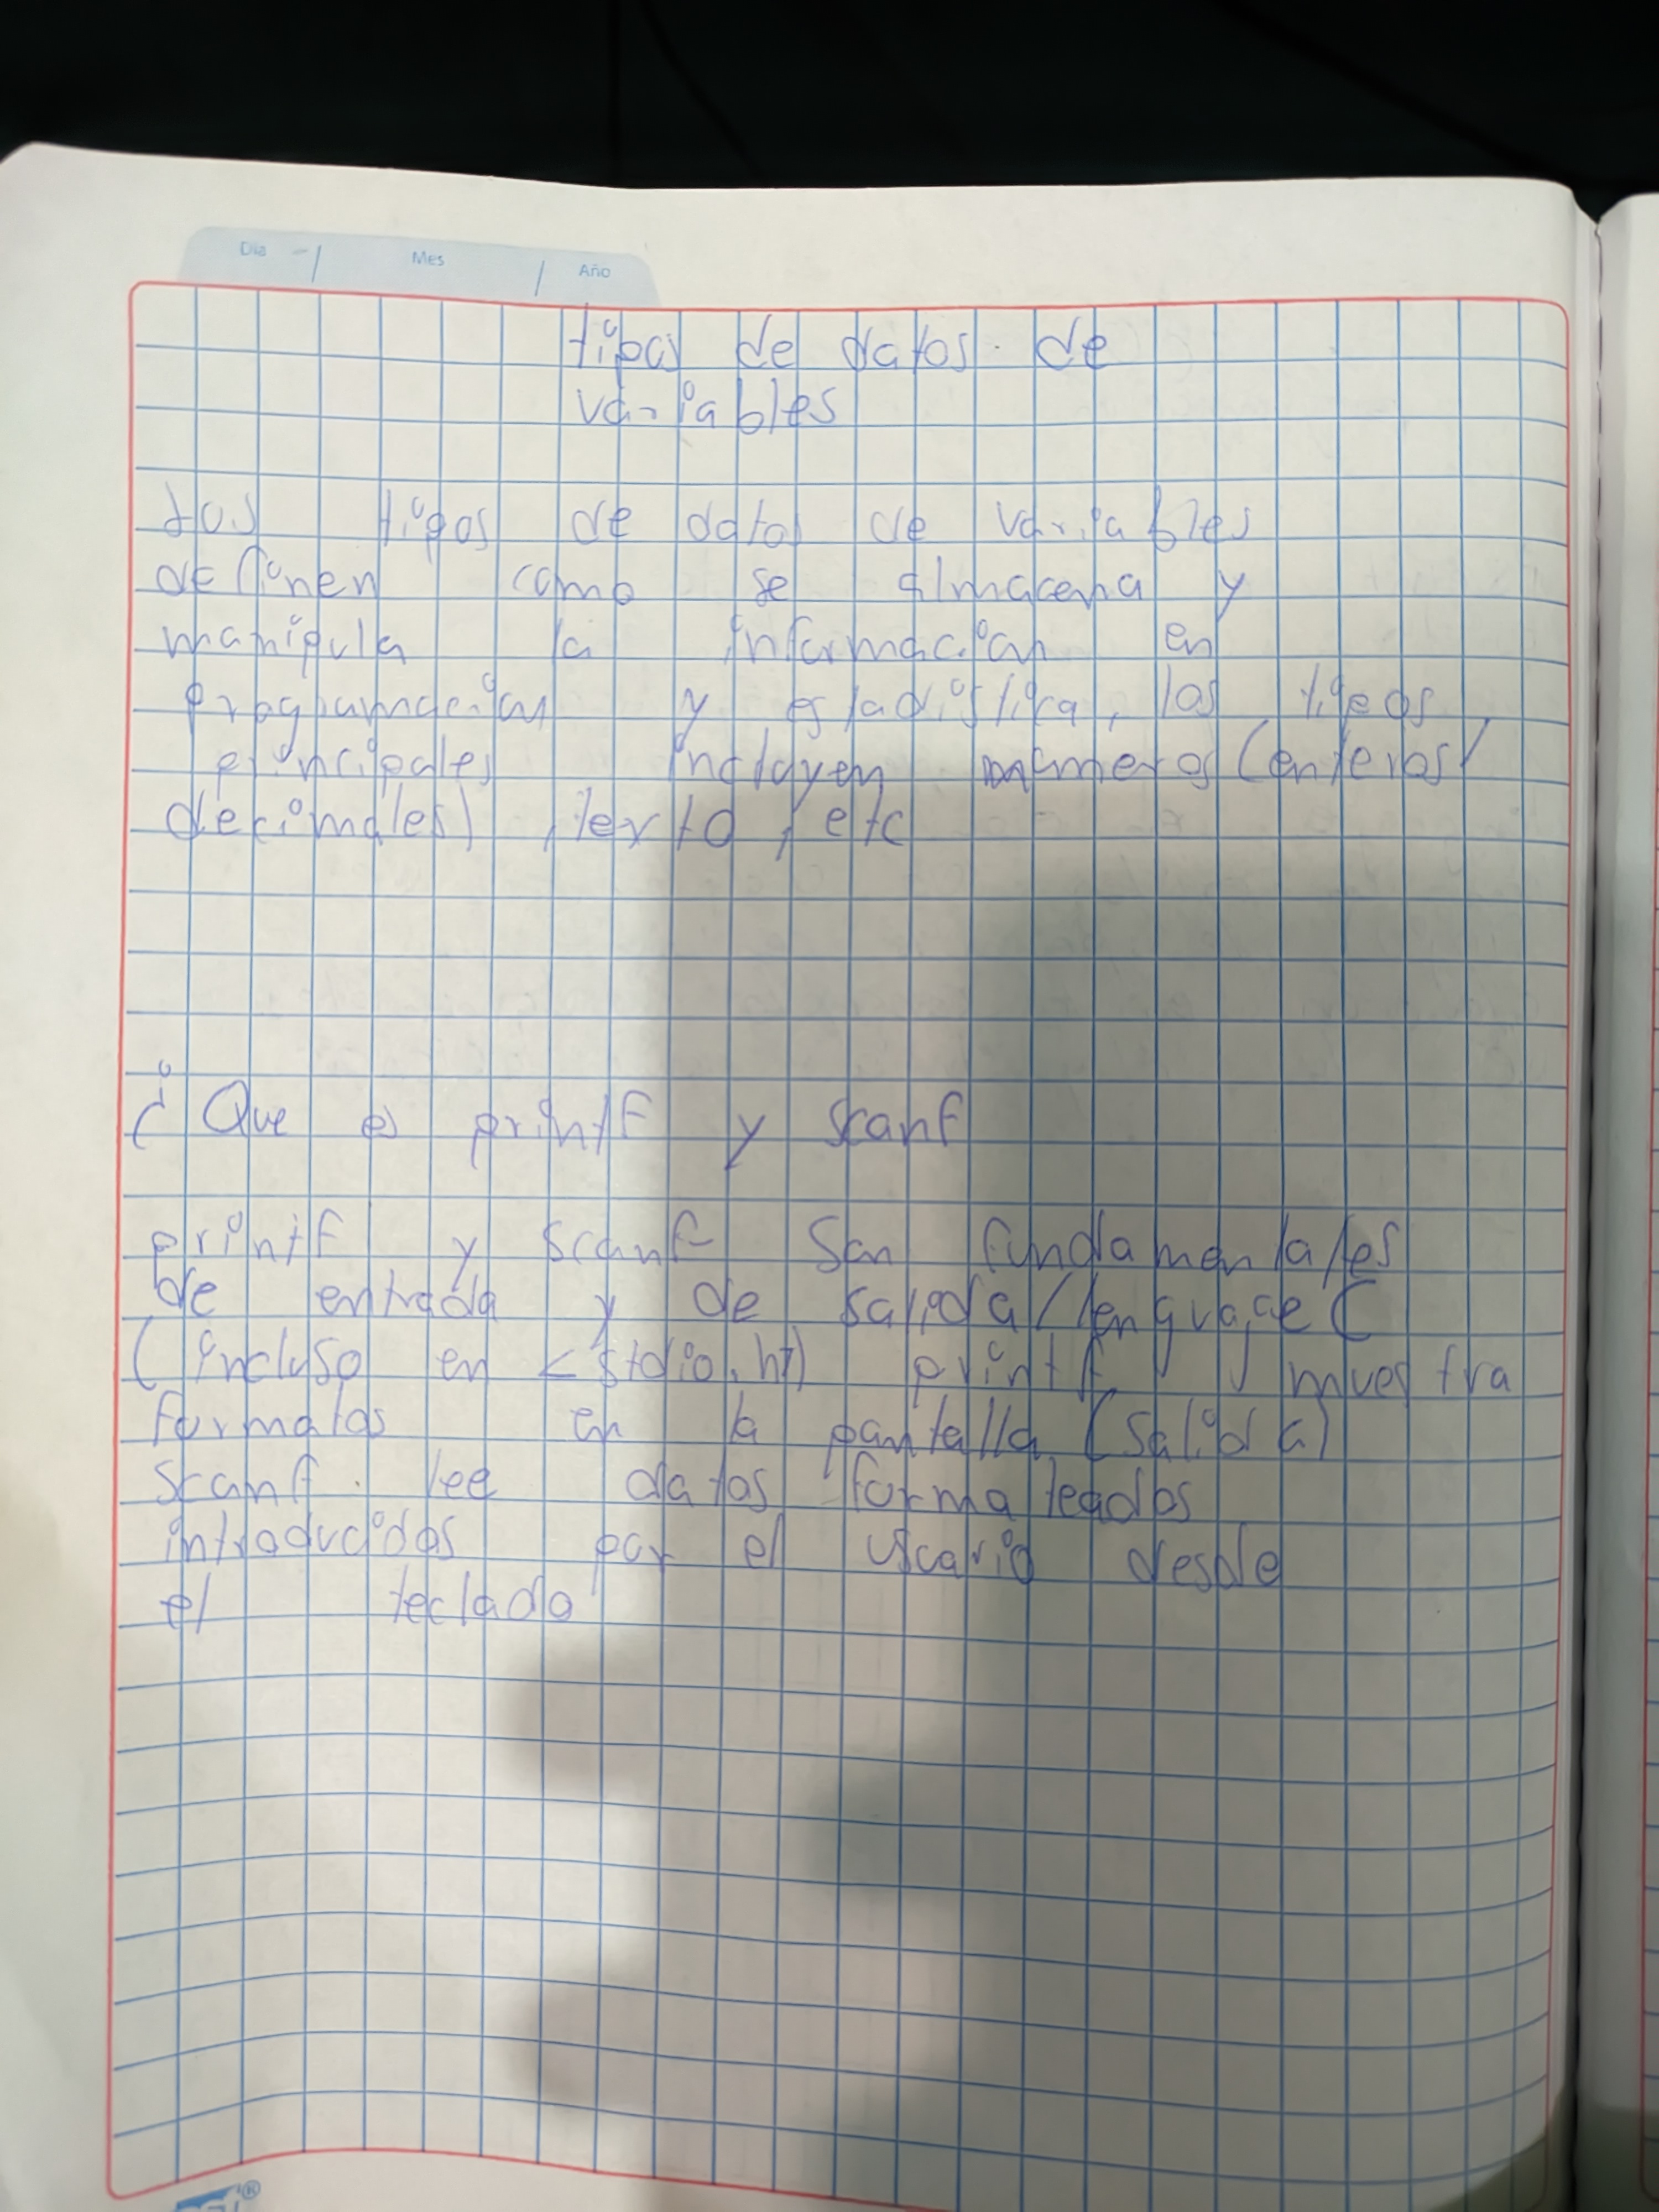 Dia / Mes / Año
tipos de datos de
variables
Los tipos de datos de variables
definen como se almacena y
manipula la informacion en
programacion y estadistica, los tipos
principales incluyen numeros (enteros/
decimales), texto, etc
¿Que es printf y scanf
printf y scanf son fundamentales
de entrada y de salida/lenguaje C
(incluso en <stdio.h>) printf muestra
formatos en la pantalla (salida)
scanf lee datos formateados
introducidos por el uscario desde
el teclado